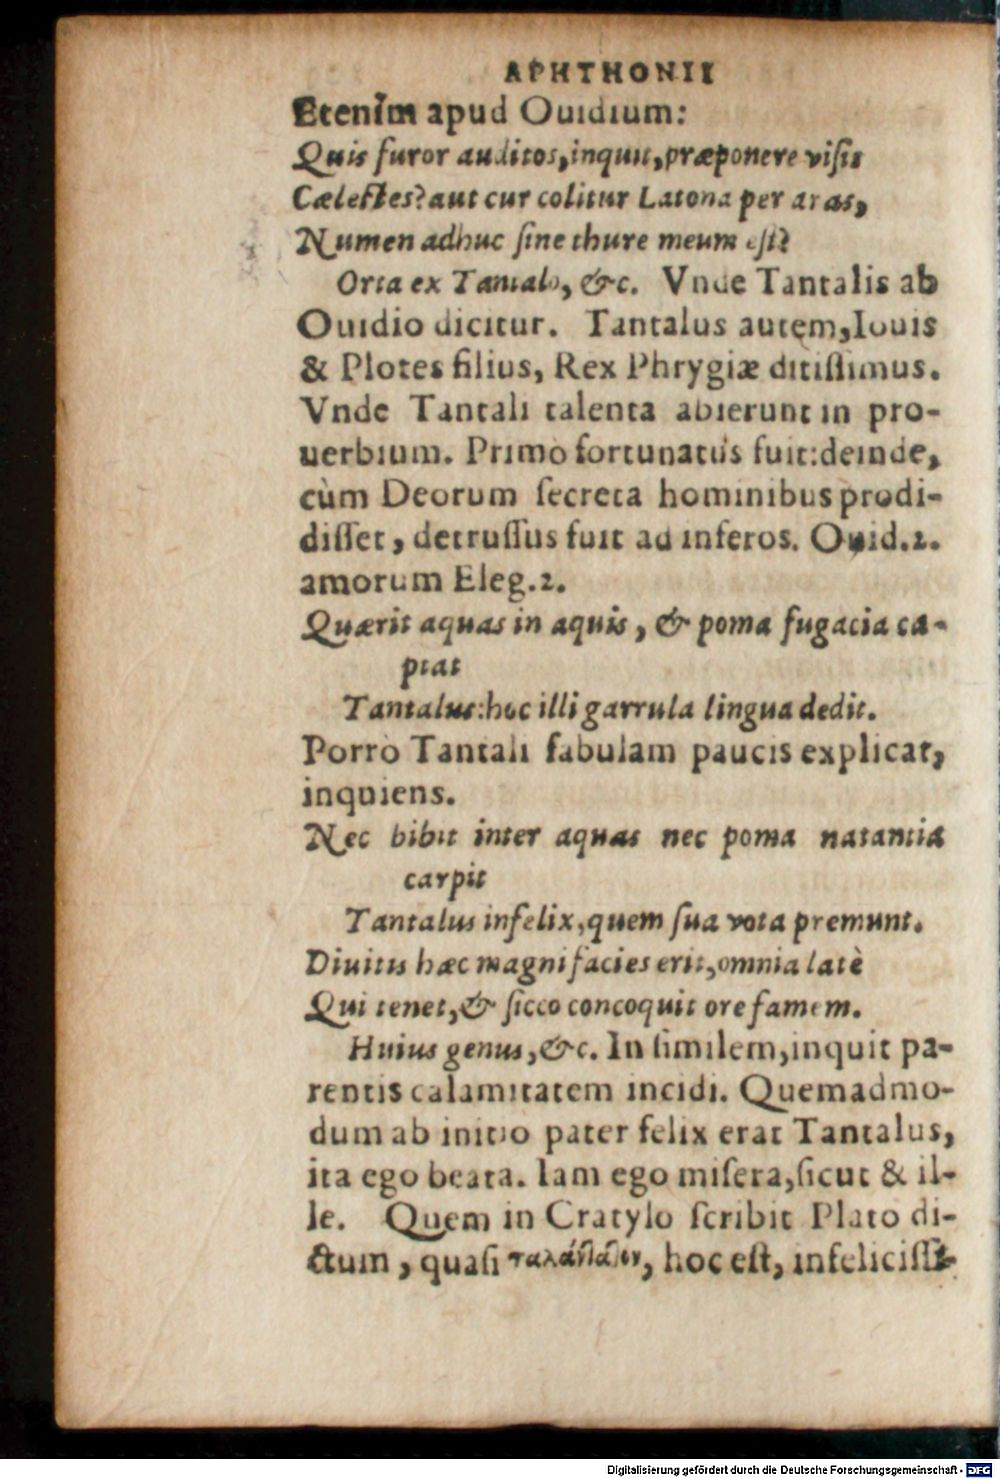 APHTHONII
Etenim apud Ouidium:
Quis furor auditos, inquit, præponere visis
Cælestes? aut cur colitur Latona per aras,
Numen adhuc sine thure meum est?
Orta ex Tantalo, &c. Vnde Tantalis ab
Ouidio dicitur. Tantalus autem, Iouis
& Plotes filius, Rex Phrygiæ ditissimus.
Vnde Tantali talenta abierunt in pro-
uerbium. Primo fortunatus fuit: deinde,
cùm Deorum secreta hominibus prodi-
disset, detrussus fuit ad inferos. Ouid. 2.
amorum Eleg. 2.
Quærit aquas in aquis, & poma fugacia ca-
ptat
Tantalus: hoc illi garrula lingua dedit.
Porrò Tantali fabulam paucis explicat,
inquiens.
Nec bibit inter aquas nec poma natantia
carpit
Tantalus infelix, quem sua vota premunt.
Diuitis hæc magni facies erit, omnia latè
Qui tenet, & sicco concoquit ore famem.
Huius genus, &c. In similem, inquit pa-
rentis calamitatem incidi. Quemadmo-
dum ab initio pater felix erat Tantalus,
ita ego beata. Iam ego misera, sicut & il-
le. Quem in Cratylo scribit Plato di-
ctum, quasi , hoc est, infelicissi-
Digitalisierung gefördert durch die Deutsche Forschungsgemeinschaft - DFG